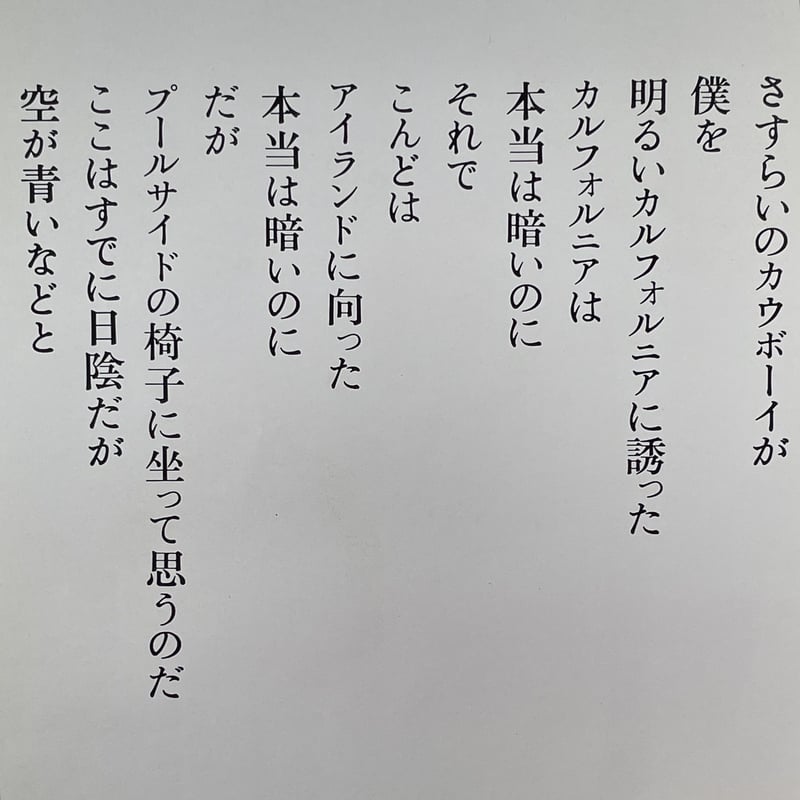 さすらいのカウボーイが
僕を
明るいカルフォルニアに誘った
カルフォルニアは
本当は暗いのに
それで
こんどは
アイランドに向った
本当は暗いのに
だが
プールサイドの椅子に坐って思うのだ
ここはすでに日陰だが
空が青いなどと